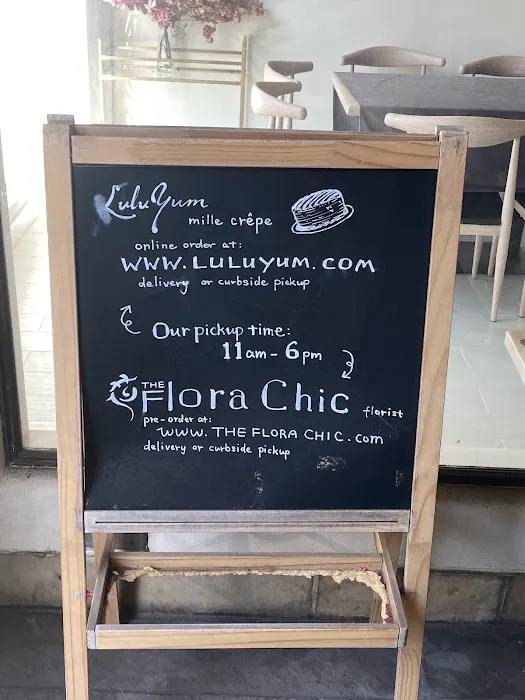 LuluYum
mille crêpe
online order at:
WWW.LULUYUM.COM
delivery or curbside pickup
Our pickup time:
11am - 6pm
THE
Flora Chic florist
pre-order at:
WWW.THEFLORACHIC.com
delivery or curbside pickup